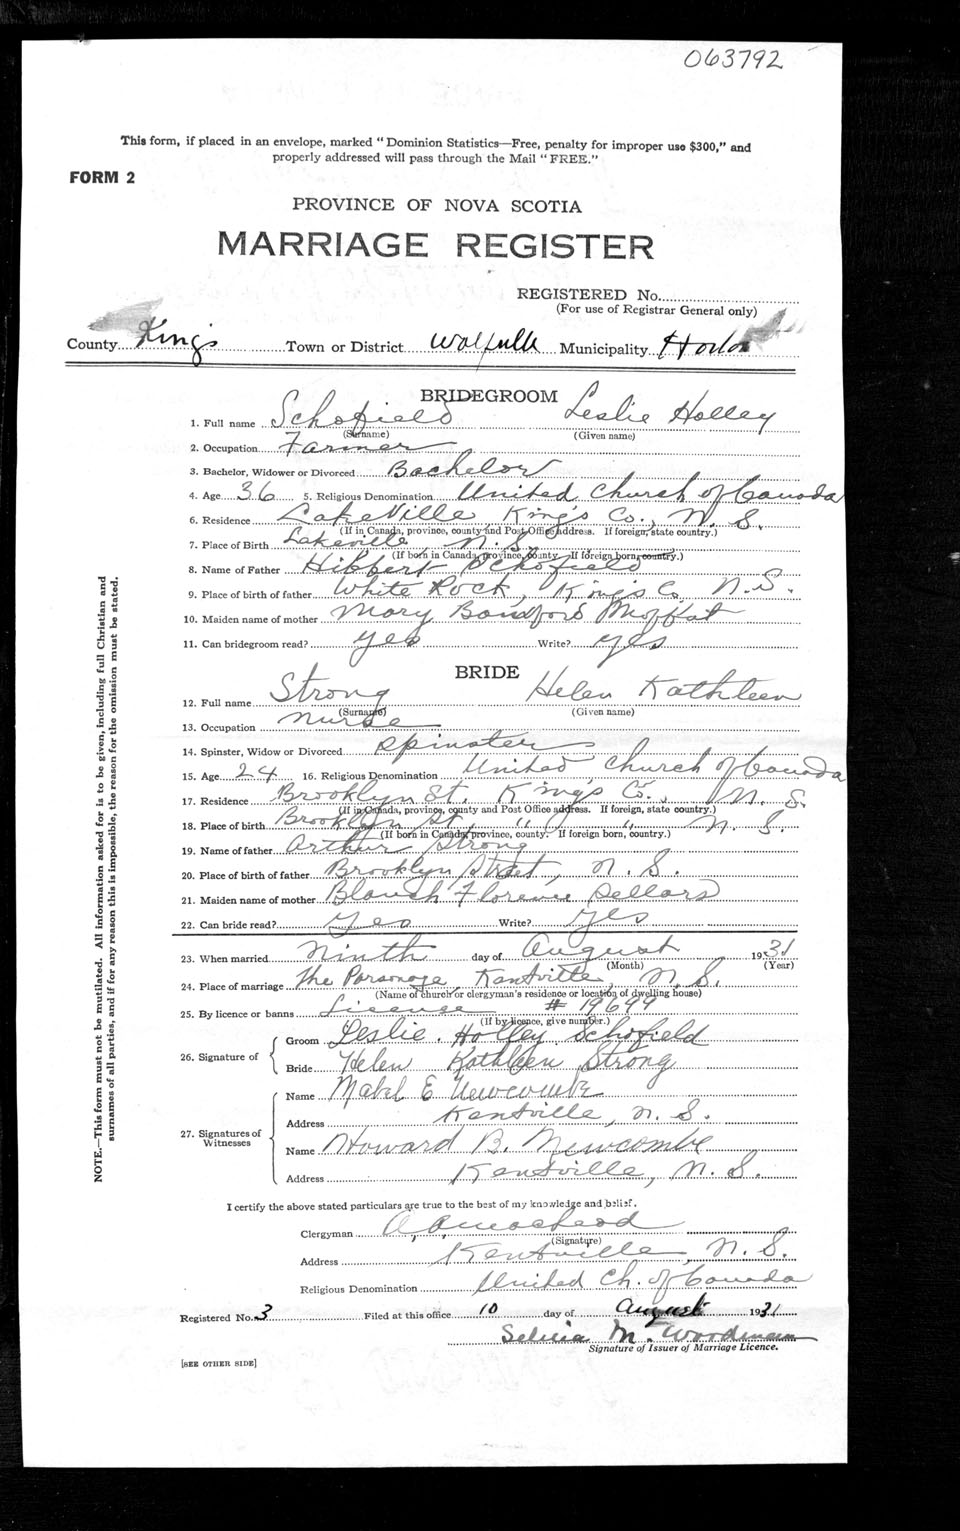 063792
This form, if placed in an envelope, marked "Dominion Statistics—Free, penalty for improper use $300," and
properly addressed will pass through the Mail "FREE."
FORM 2
PROVINCE OF NOVA SCOTIA
MARRIAGE REGISTER
REGISTERED No.
(For use of Registrar General only)
County Kings Town or District Wolfville Municipality Horton
BRIDEGROOM
1. Full name Schofield Leslie Holley
(Surname) (Given name)
2. Occupation Farmer
3. Bachelor, Widower or Divorced Bachelor
4. Age 36 5. Religious Denomination United Church of Canada
6. Residence Lakeville King's Co., N. S.
(If in Canada, province, county and Post Office address. If foreign, state country.)
7. Place of Birth Lakeville N. S.
(If born in Canada, province, county. If foreign born, country.)
8. Name of Father Hibbert Schofield
9. Place of birth of father White Rock, King's Co. N. S.
10. Maiden name of mother Mary Moffat
11. Can bridegroom read? yes Write? yes
BRIDE
12. Full name Strong Helen Kathleen
(Surname) (Given name)
13. Occupation nurse
14. Spinster, Widow or Divorced spinster
15. Age 24 16. Religious Denomination United Church of Canada
17. Residence Brooklyn St. King's Co., N. S.
(If in Canada, province, county and Post Office address. If foreign, state country.)
18. Place of birth Brooklyn St, " " N. S.
(If born in Canada, province, county. If foreign born, country.)
19. Name of father Arthur Strong
20. Place of birth of father Brooklyn Street, N. S.
21. Maiden name of mother Blanch Florence Sellars
22. Can bride read? yes Write? yes
23. When married Ninth day of August 1931
(Month) (Year)
24. Place of marriage The Parsonage, Kentville, N. S.
(Name of church or clergyman's residence or location of dwelling house)
25. By licence or banns License # 19699
(If by licence, give number.)
26. Signature of
Groom Leslie. Holley Schofield
Bride Helen Kathleen Strong
27. Signatures of Witnesses
Name Mabel E Newcombe
Address Kentville, N. S.
Name Howard B. Newcombe
Address Kentville, N. S.
I certify the above stated particulars are true to the best of my knowledge and belief.
Clergyman
(Signature)
Address Kentville, N. S.
Religious Denomination United Ch. of Canada
Registered No. 3 Filed at this office 10 day of August 1931
M. Woodman
Signature of Issuer of Marriage Licence.
[SEE OTHER SIDE]
NOTE.—This form must not be mutilated. All information asked for is to be given, including full Christian and
surnames of all parties, and if for any reason this is impossible, the reason for the omission must be stated.